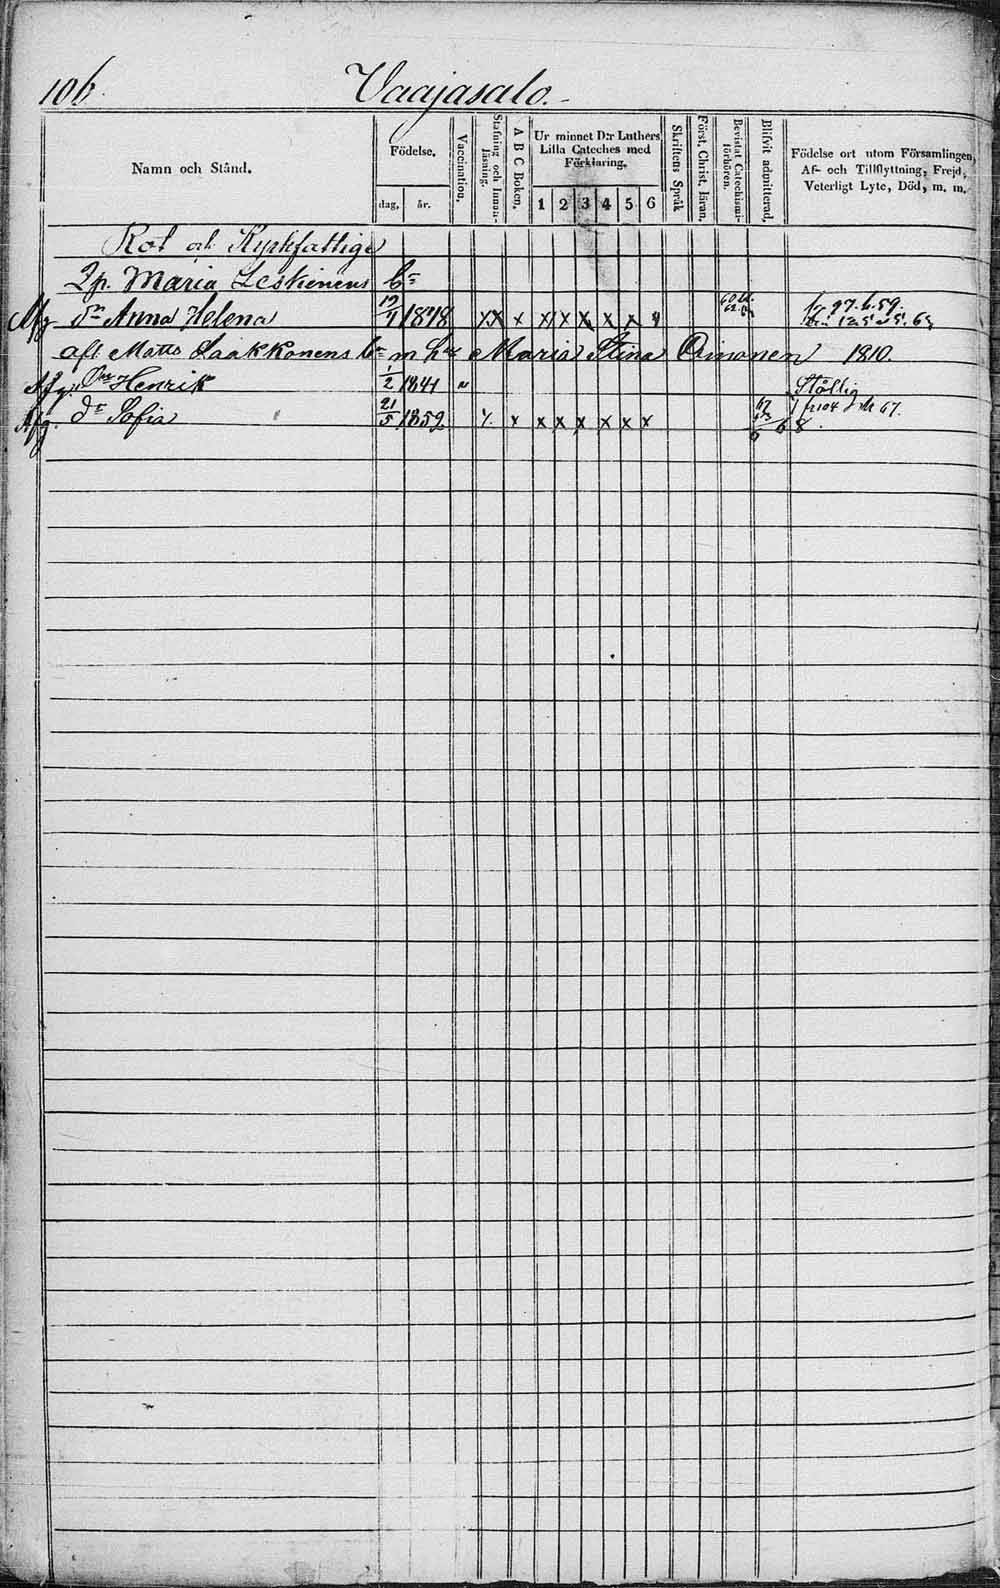 106. Vaajasalo.
Namn och Stånd.
Födelse.
dag. år.
Vaccination.
Stafning och Innan-läsning.
A B C Boken.
Ur minnet D:r Luthers
Lilla Cateches med
Förklaring.
1 2 3 4 5 6
Skriftens Språk
Först. Christ. läran.
Bevistat Catechismi-förhören.
Blifvit admitterad.
Födelse ort utom Församlingen,
Af- och Tillflyttning, Frejd,
Veterligt Lyte, Död, m. m.
Rot och Kyrkfattige
Maria Leskinens
Afg dr Anna Helena 1848 x x x x x x x fr 97. 6. 59.
afl. Matts Laakkonens m h Maria Stina 1810.
Afg. Henrik 1/2 1841 "
Afg. dr Sofia 21/5 1852 x x x x x x x 68